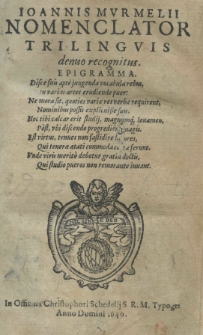 IOANNIS MVRMELII
NOMENCLATOR
TRILINGVIS
denuo recognitus.
EPIGRAMMA.
Disce suis apte jungenda vocabula rebus,
In varias artes erudiende puer:
Ne mora sit, quoties varie res verba requirent,
Nominibus possis explicuisse suis.
Hoc tibi calcar erit studij, magnumq; levamen,
Post, ubi discendo progrediere magis.
Est virtus, tenues non fastidire labores,
Qui tenerae aetati commoda ferunt.
Unde viris merito debetur gratia doctis,
Qui studio pueros non remorante iuvant.
In Officina Christophori Schedelij S. R. M. Typogr.
Anno Domini 1640.